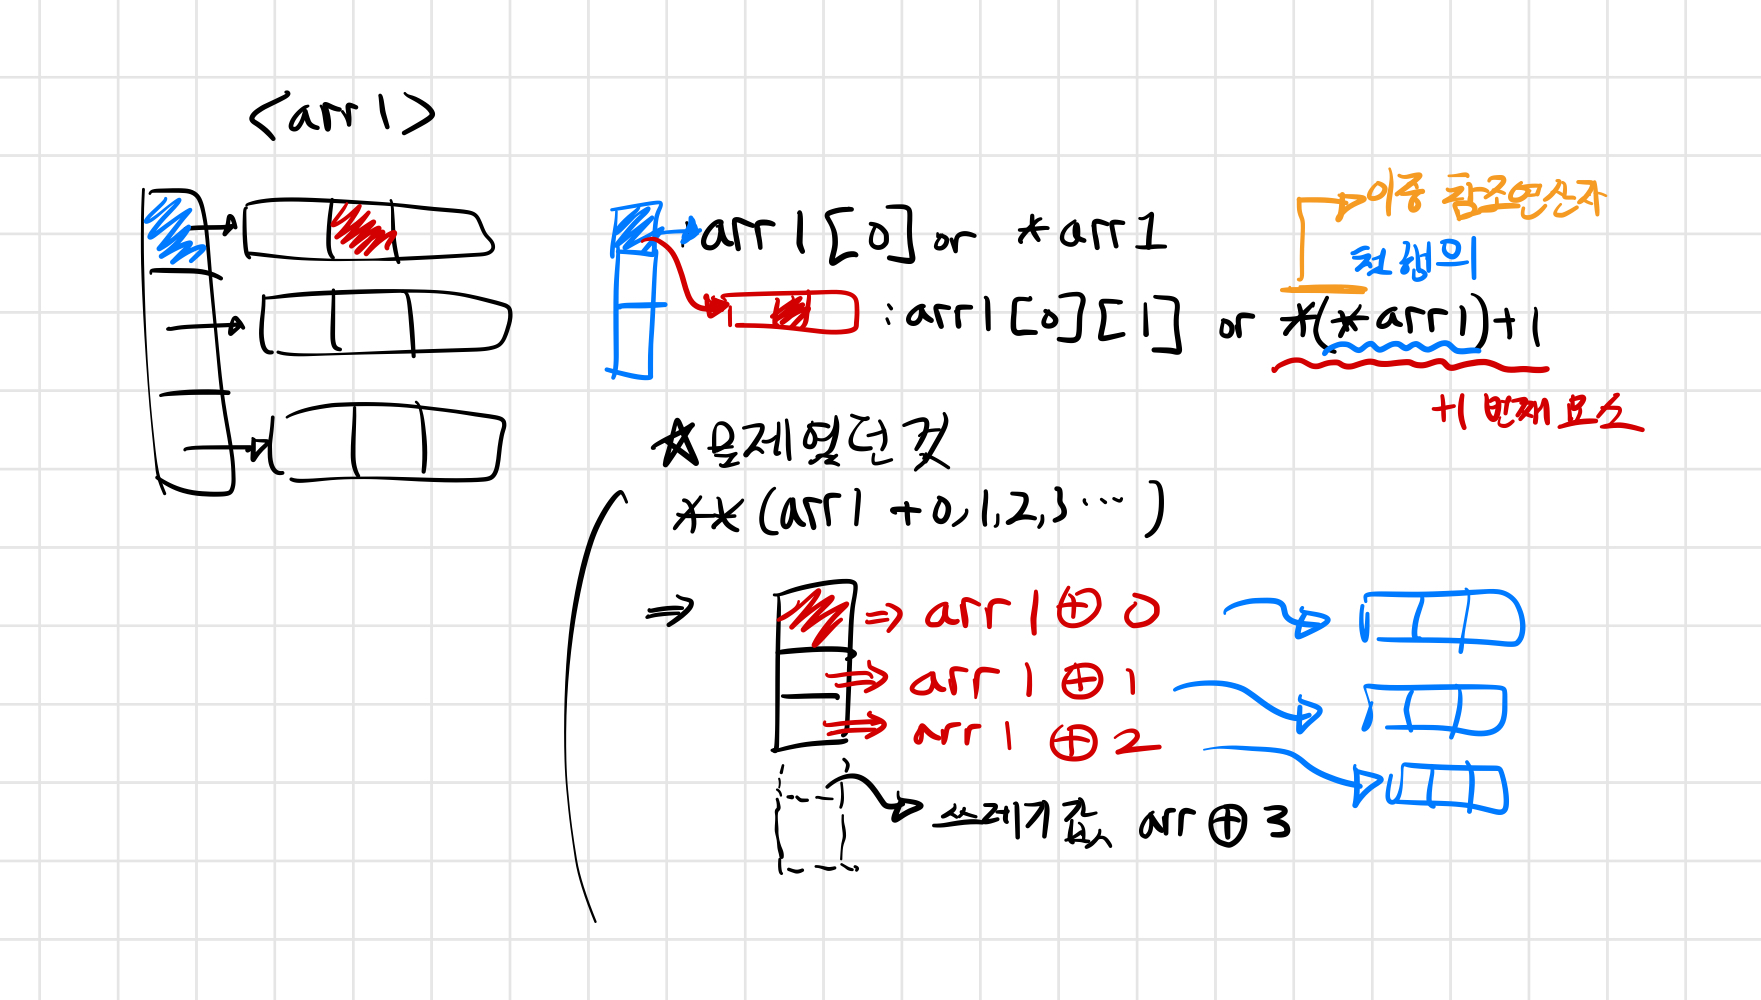 <arr1>
이중 참조연산자
arr1[0] or *arr1
첫 행의
: arr1[0][1] or *(*arr1)+1
+1 번째 요소
☆문제였던 것
**(arr1 +0,1,2,3…)
⇒ ⇒ arr1 ⊕ 0
⇒ arr1 ⊕ 1
⇒ arr1 ⊕ 2
쓰레기값 arr ⊕ 3